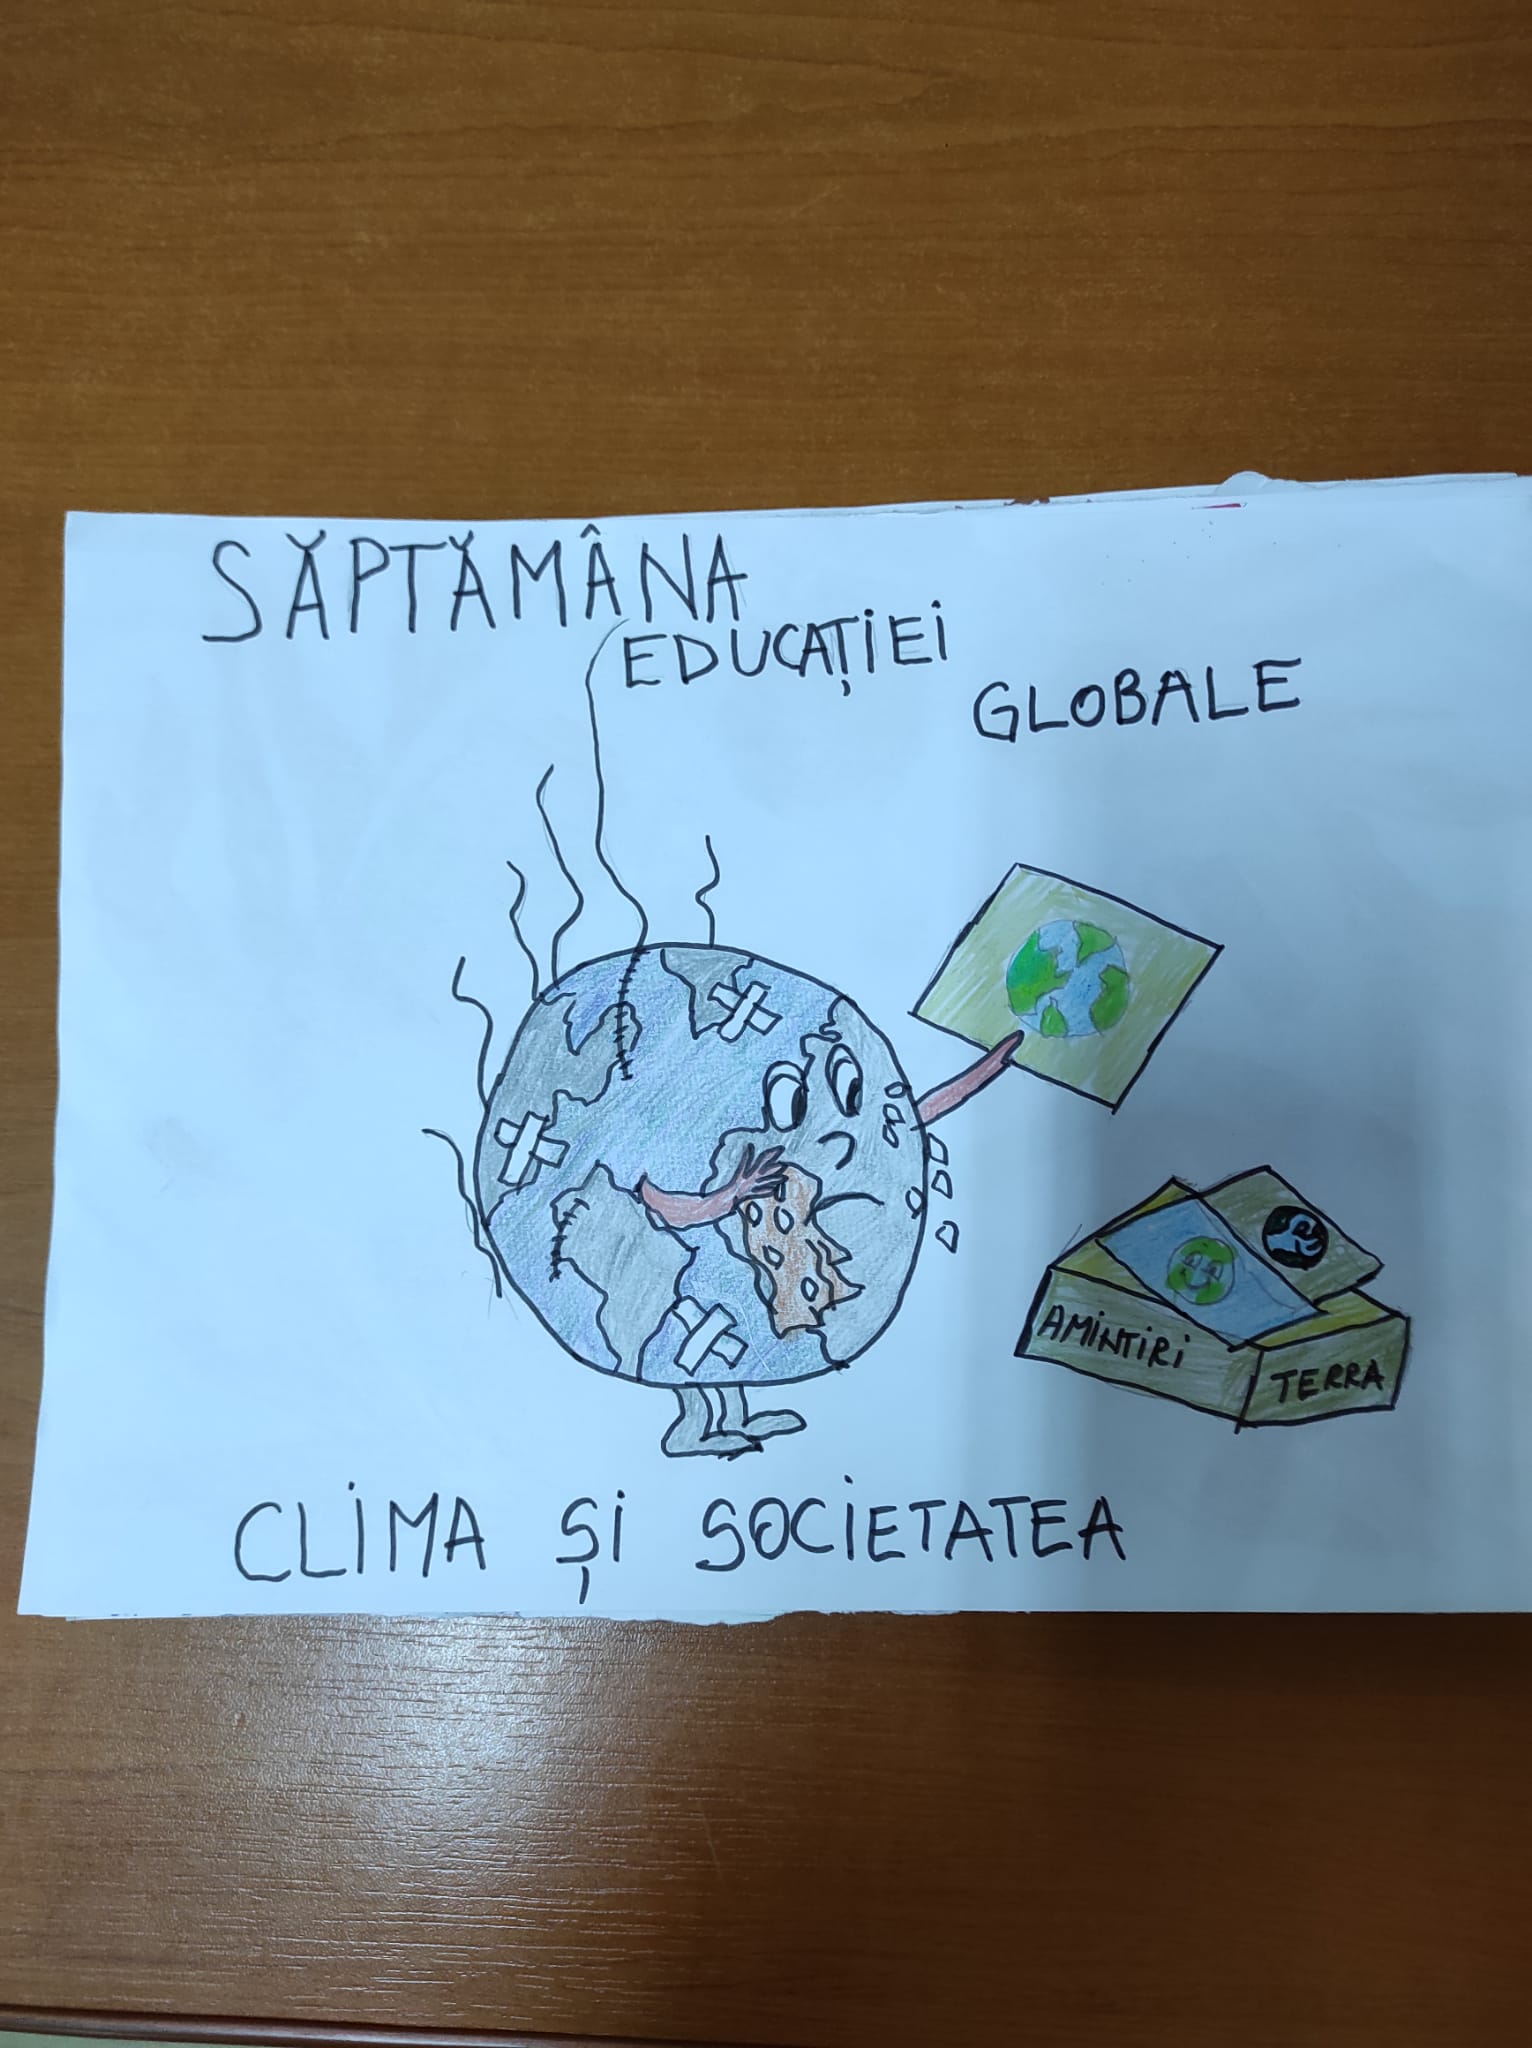 SĂPTĂMÂNA
EDUCAȚIEI
GLOBALE
AMINTIRI
TERRA
CLIMA ȘI SOCIETATEA